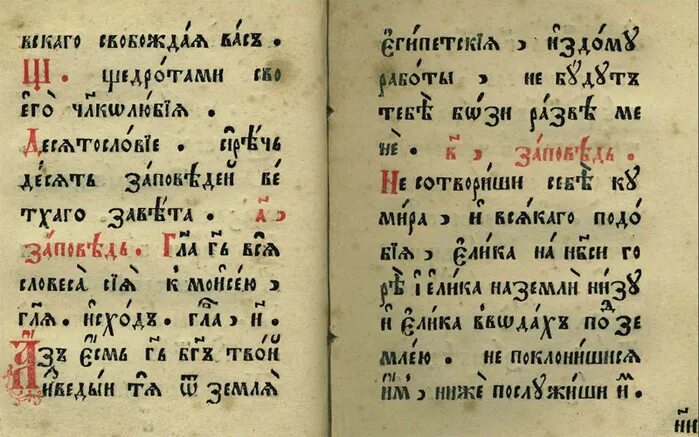 вскаго свобождаѧ ва́съ .
Щ . щедро́тами сво
его̀ чл҃колю́бїѧ .
Десѧтосло́вїе . си́рѣчь
де́сѧть за́повѣдей ве
тхаго завѣ́та . а҃ ,
За́повѣдь . Гл҃а гд҇ь всѧ̑
словеса̀ сїѧ̀ к моисе́ю ,
гл҃ѧ . исхо́дъ . гла҃ , к҃ .
А҆́зъ є҆́смь гд҇ь бг҃ъ тво́й
и҆зведы́и тѧ̀ ѿ землѧ̀
є҆ги́петскїѧ , и҆здо́му
рабо́ты , не бꙋ́дутъ
тебѣ̀ бѡ́зи ра́звѣ ме
нѐ . в҃ , За́повѣдь .
Не сотвори́ши себѣ̀ кꙋ
ми́ра , и҆ всѧ́каго подо́
бїѧ , є҆ли́ка на нб҃си го
рѣ̀ і҆ є҆ли́ка на землѝ ни́зꙋ
и҆ є҆ли́ка в вѡда́хъ под̾ зе
мле́ю . не поклони́шисѧ
и҆̀мъ , нижѐ послꙋ́жиши и҆̀м .